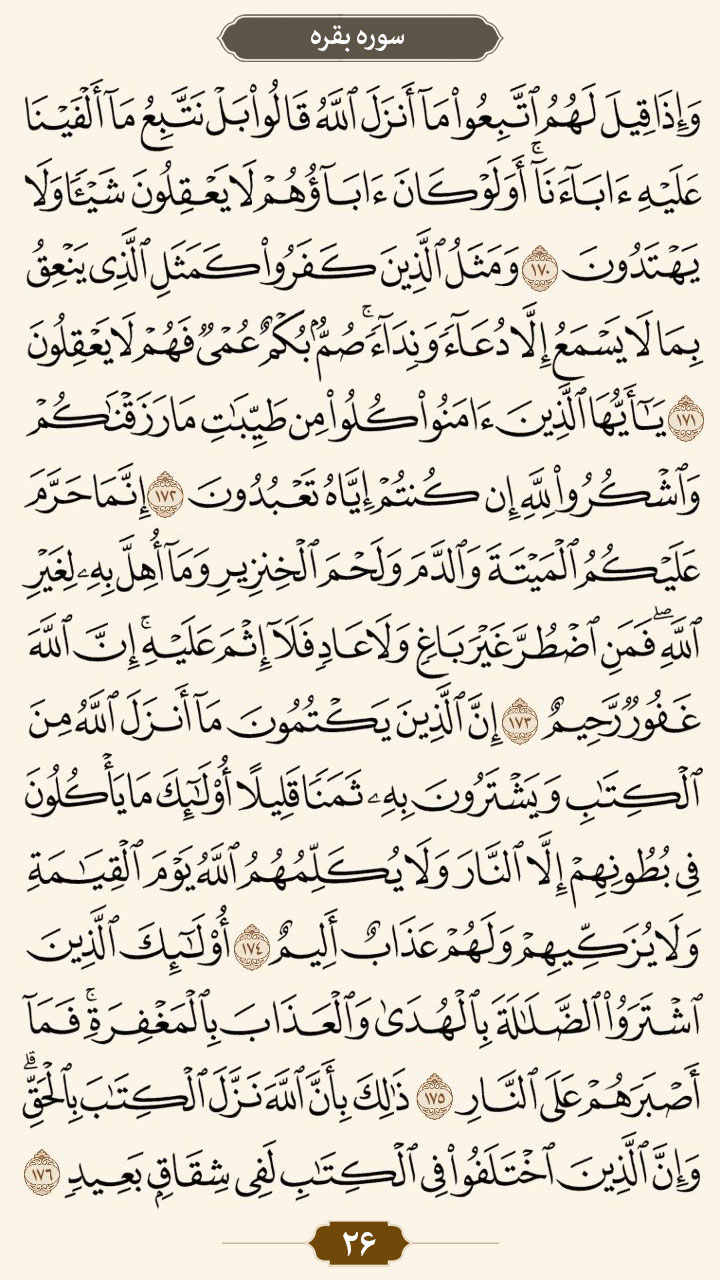 سوره بقره
وَإِذَا قِيلَ لَهُمُ ٱتَّبِعُوا۟ مَآ أَنزَلَ ٱللَّهُ قَالُوا۟ بَلْ نَتَّبِعُ مَآ أَلْفَيْنَا
عَلَيْهِ ءَابَآءَنَآ ۚ أَوَلَوْ كَانَ ءَابَآؤُهُمْ لَا يَعْقِلُونَ شَيْـًٔا وَلَا
يَهْتَدُونَ ١٧٠ وَمَثَلُ ٱلَّذِينَ كَفَرُوا۟ كَمَثَلِ ٱلَّذِى يَنْعِقُ
بِمَا لَا يَسْمَعُ إِلَّا دُعَآءً وَنِدَآءً ۚ صُمٌّۢ بُكْمٌ عُمْىٌ فَهُمْ لَا يَعْقِلُونَ
١٧١ يَـٰٓأَيُّهَا ٱلَّذِينَ ءَامَنُوا۟ كُلُوا۟ مِن طَيِّبَـٰتِ مَا رَزَقْنَـٰكُمْ
وَٱشْكُرُوا۟ لِلَّهِ إِن كُنتُمْ إِيَّاهُ تَعْبُدُونَ ١٧٢ إِنَّمَا حَرَّمَ
عَلَيْكُمُ ٱلْمَيْتَةَ وَٱلدَّمَ وَلَحْمَ ٱلْخِنزِيرِ وَمَآ أُهِلَّ بِهِۦ لِغَيْرِ
ٱللَّهِ ۖ فَمَنِ ٱضْطُرَّ غَيْرَ بَاغٍ وَلَا عَادٍ فَلَآ إِثْمَ عَلَيْهِ ۚ إِنَّ ٱللَّهَ
غَفُورٌ رَّحِيمٌ ١٧٣ إِنَّ ٱلَّذِينَ يَكْتُمُونَ مَآ أَنزَلَ ٱللَّهُ مِنَ
ٱلْكِتَـٰبِ وَيَشْتَرُونَ بِهِۦ ثَمَنًا قَلِيلًا أُو۟لَـٰٓئِكَ مَا يَأْكُلُونَ
فِى بُطُونِهِمْ إِلَّا ٱلنَّارَ وَلَا يُكَلِّمُهُمُ ٱللَّهُ يَوْمَ ٱلْقِيَـٰمَةِ
وَلَا يُزَكِّيهِمْ وَلَهُمْ عَذَابٌ أَلِيمٌ ١٧٤ أُو۟لَـٰٓئِكَ ٱلَّذِينَ
ٱشْتَرَوُا۟ ٱلضَّلَـٰلَةَ بِٱلْهُدَىٰ وَٱلْعَذَابَ بِٱلْمَغْفِرَةِ ۚ فَمَآ
أَصْبَرَهُمْ عَلَى ٱلنَّارِ ١٧٥ ذَٰلِكَ بِأَنَّ ٱللَّهَ نَزَّلَ ٱلْكِتَـٰبَ بِٱلْحَقِّ ۗ
وَإِنَّ ٱلَّذِينَ ٱخْتَلَفُوا۟ فِى ٱلْكِتَـٰبِ لَفِى شِقَاقٍۭ بَعِيدٍ ١٧٦
۲۶